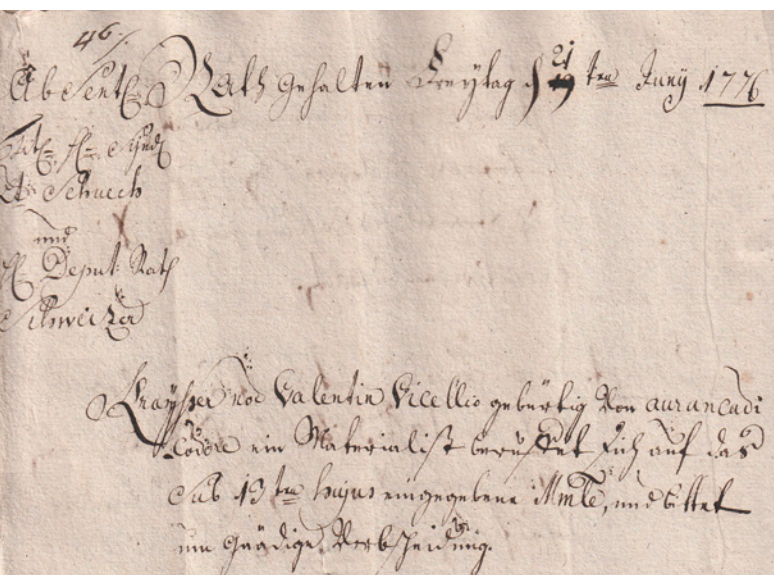 46.
Absent. Rath gehalten Freytag d 21 ten Juny 1776
Tit. H. Synd.
Schuech
und
H. Deput. Rath
Schweizer
noe Valentin Vicellio gebürtig von
ein Materialist beruffet sich auf das
sub 13 ten hujus eingegebene Mmle, und bittet
um gnädige Verbscheidung.